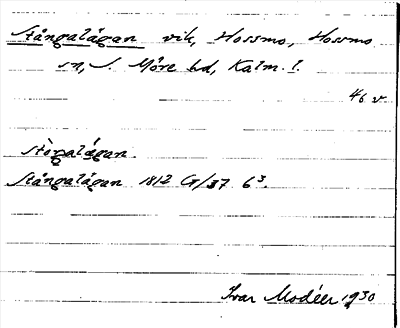 Stångalågan vik, Hossmo, Hossmo
sn, S. Möre hd, Kalm. l.
4b v
Stångalågan 1812 G/37 6³.
Ivar Modéer 1930